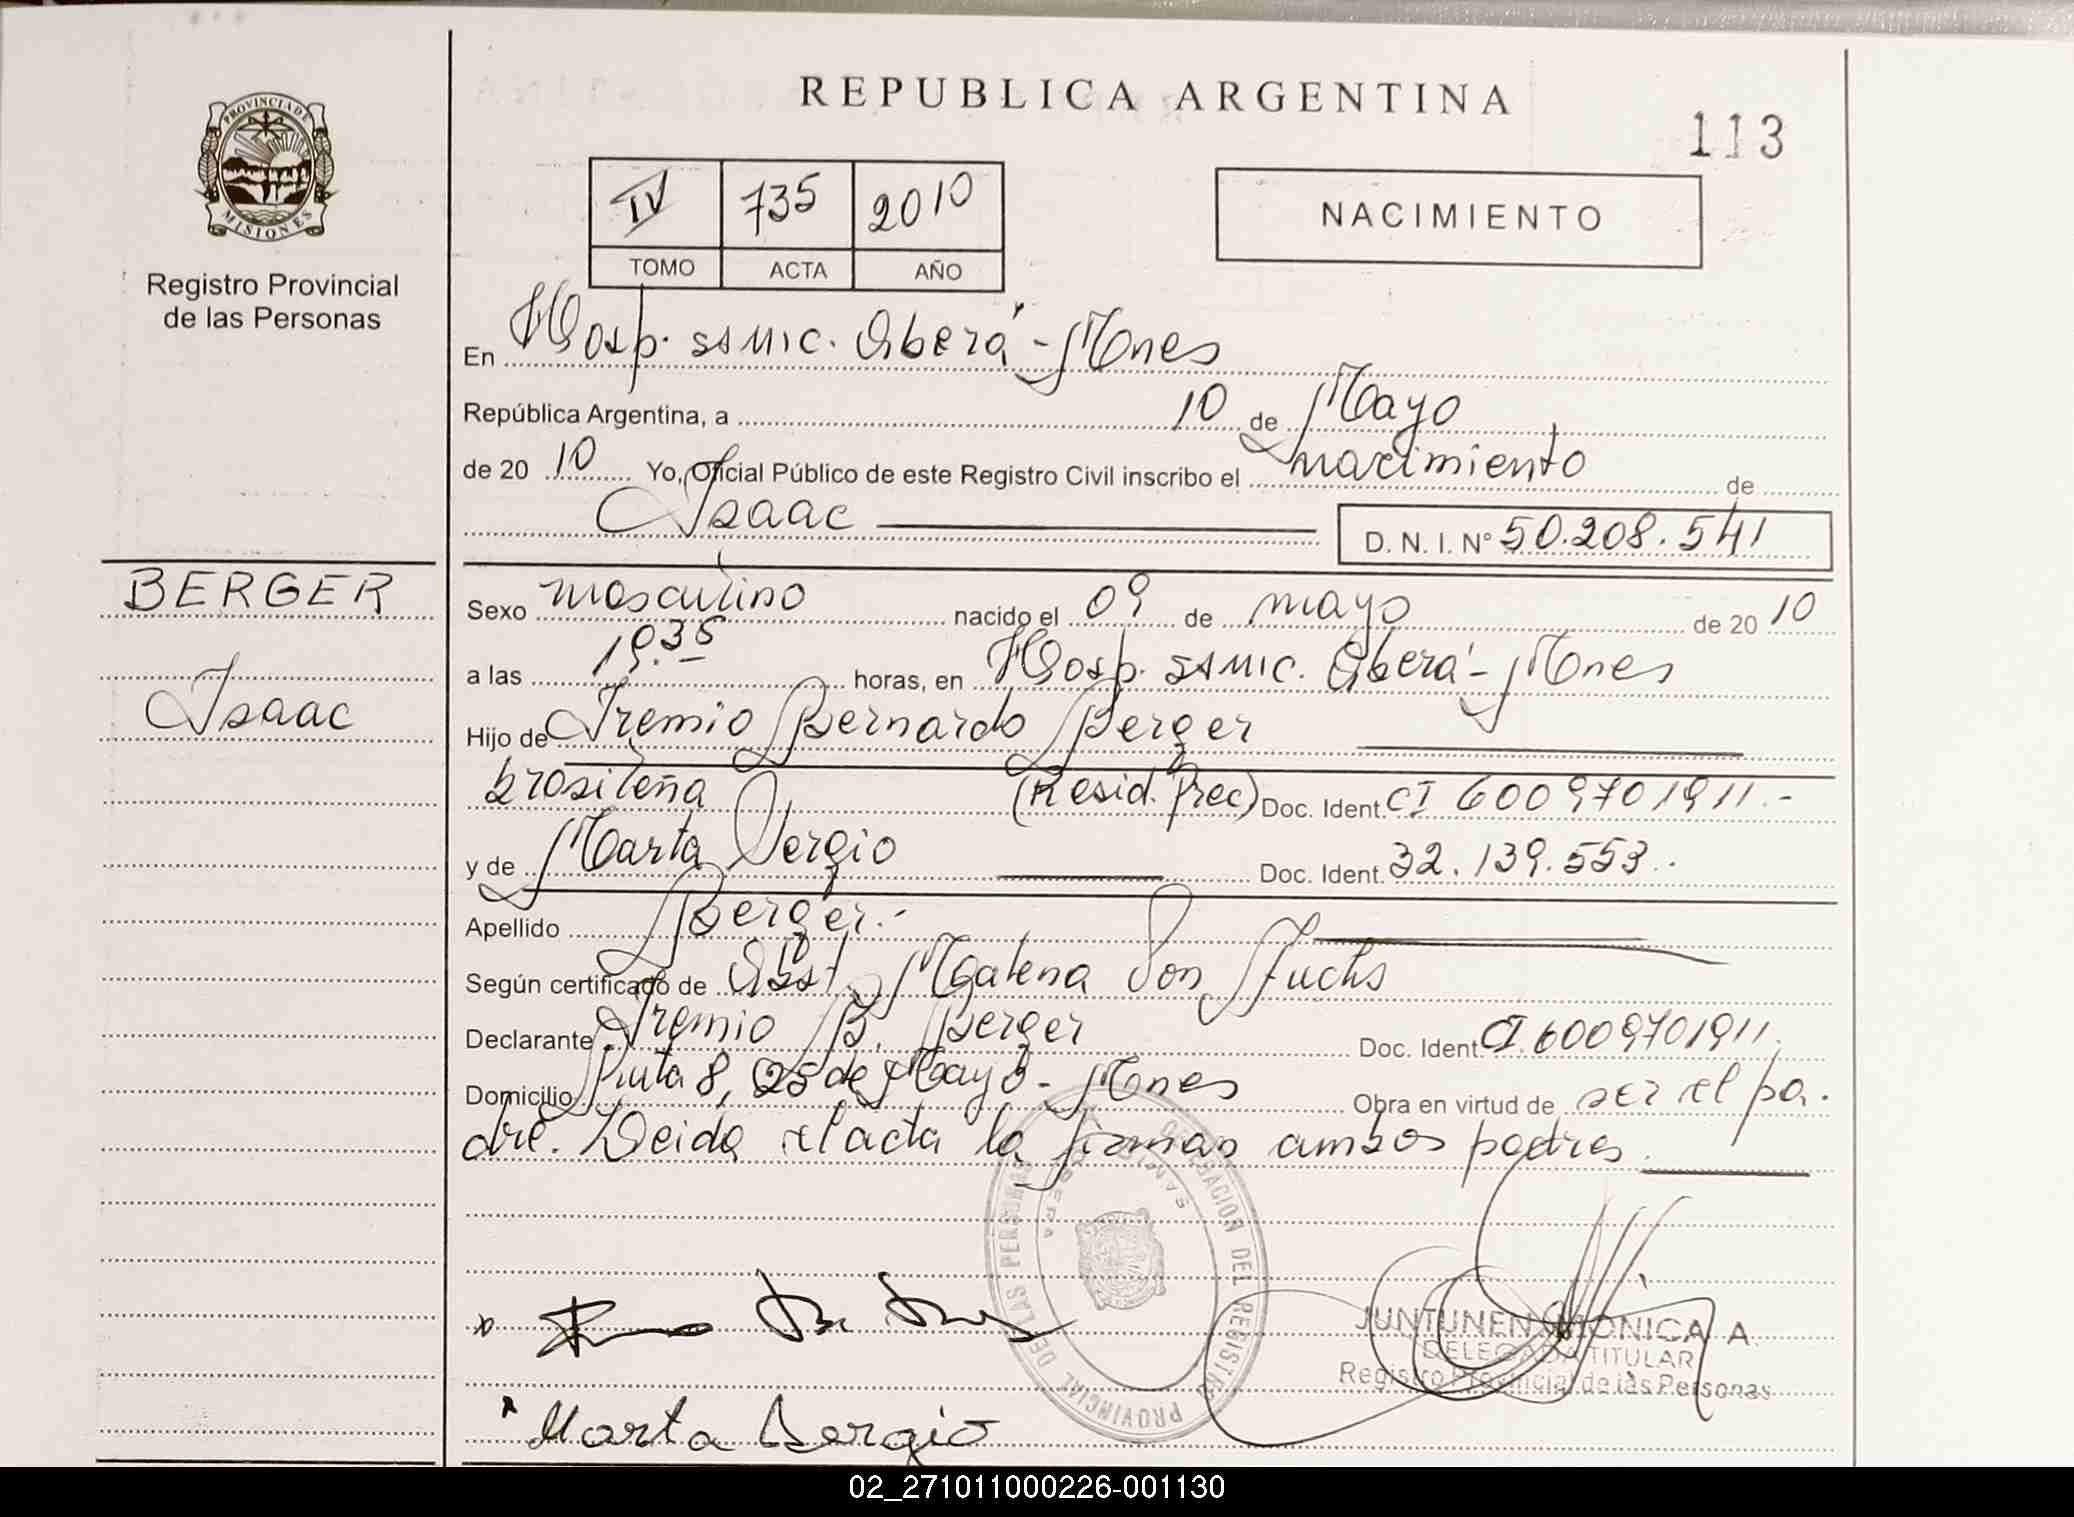 REPUBLICA ARGENTINA
113
PROVINCIA DE
MISIONES
Registro Provincial
de las Personas
IV 735 2010
TOMO ACTA AÑO
NACIMIENTO
En Hosp. SAMIC. Oberá - Mnes
República Argentina, a 10 de Mayo
de 20 10 Yo, Oficial Público de este Registro Civil inscribo el nacimiento de
Isaac
D. N. I. N° 50.208.541
BERGER
Isaac
Sexo masculino nacido el 09 de mayo de 20 10
a las 19.35 horas, en Hosp. SAMIC. Oberá - Mnes
Hijo de Iremio Bernardo Berger
brasileña (Resid. Prec) Doc. Ident. CI 6009701911.-
y de Marta Sergio Doc. Ident. 32.139.553.-
Apellido Berger.-
Según certificado de Obst. Malena Von Fuchs
Declarante Iremio B. Berger Doc. Ident. CI. 6009701911.
Domicilio Ruta 8, 25 de Mayo - Mnes Obra en virtud de ser el pa.
dre. Leida el acta la firman ambos padres.
DELEGACION DEL REGISTRO PROVINCIAL DE LAS PERSONAS
JUNTUNEN MONICA A.
DELEGADA TITULAR
Registro Provincial de las Personas
Marta Sergio
02_271011000226-001130